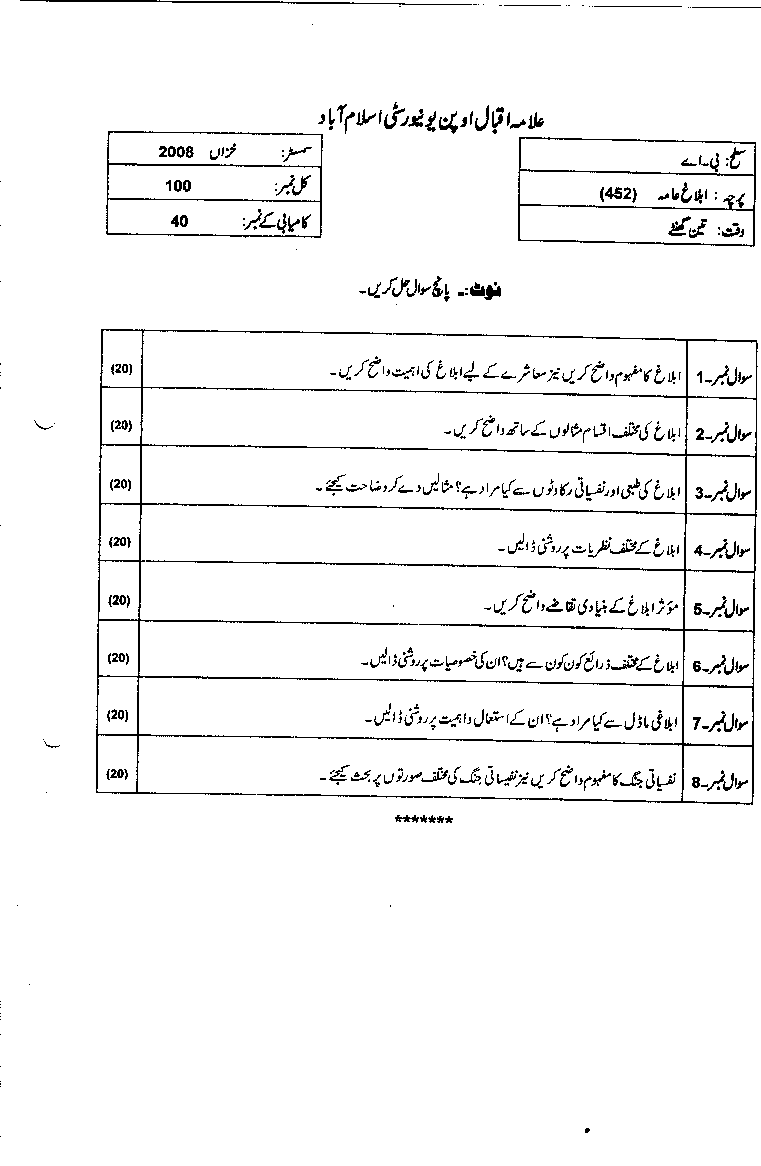 علامہ اقبال اوپن یونیورسٹی اسلام آباد
سطح: بی۔اے
پرچہ: ابلاغ عامہ (452)
وقت: تین گھنٹے
سمسٹر: خزاں 2008
کل نمبر: 100
کامیابی کے نمبر: 40
نوٹ:۔ پانچ سوال حل کریں۔
سوال نمبر۔1 ابلاغ کا مفہوم واضح کریں نیز معاشرے کے لیے ابلاغ کی اہمیت واضح کریں۔ (20)
سوال نمبر۔2 ابلاغ کی مختلف اقسام مثالوں کے ساتھ واضح کریں۔ (20)
سوال نمبر۔3 ابلاغ کی طبعی اور نفسیاتی رکاوٹوں سے کیا مراد ہے؟ مثالیں دے کر وضاحت کیجئے۔ (20)
سوال نمبر۔4 ابلاغ کے مختلف نظریات پر روشنی ڈالیں۔ (20)
سوال نمبر۔5 مؤثر ابلاغ کے بنیادی تقاضے واضح کریں۔ (20)
سوال نمبر۔6 ابلاغ کے مختلف ذرائع کون کون سے ہیں؟ ان کی خصوصیات پر روشنی ڈالیں۔ (20)
سوال نمبر۔7 ابلاغی ماڈل سے کیا مراد ہے؟ ان کے استعمال و اہمیت پر روشنی ڈالیں۔ (20)
سوال نمبر۔8 نفسیاتی جنگ کا مفہوم واضح کریں نیز نفسیاتی جنگ کی مختلف صورتوں پر بحث کیجئے۔ (20)
*******